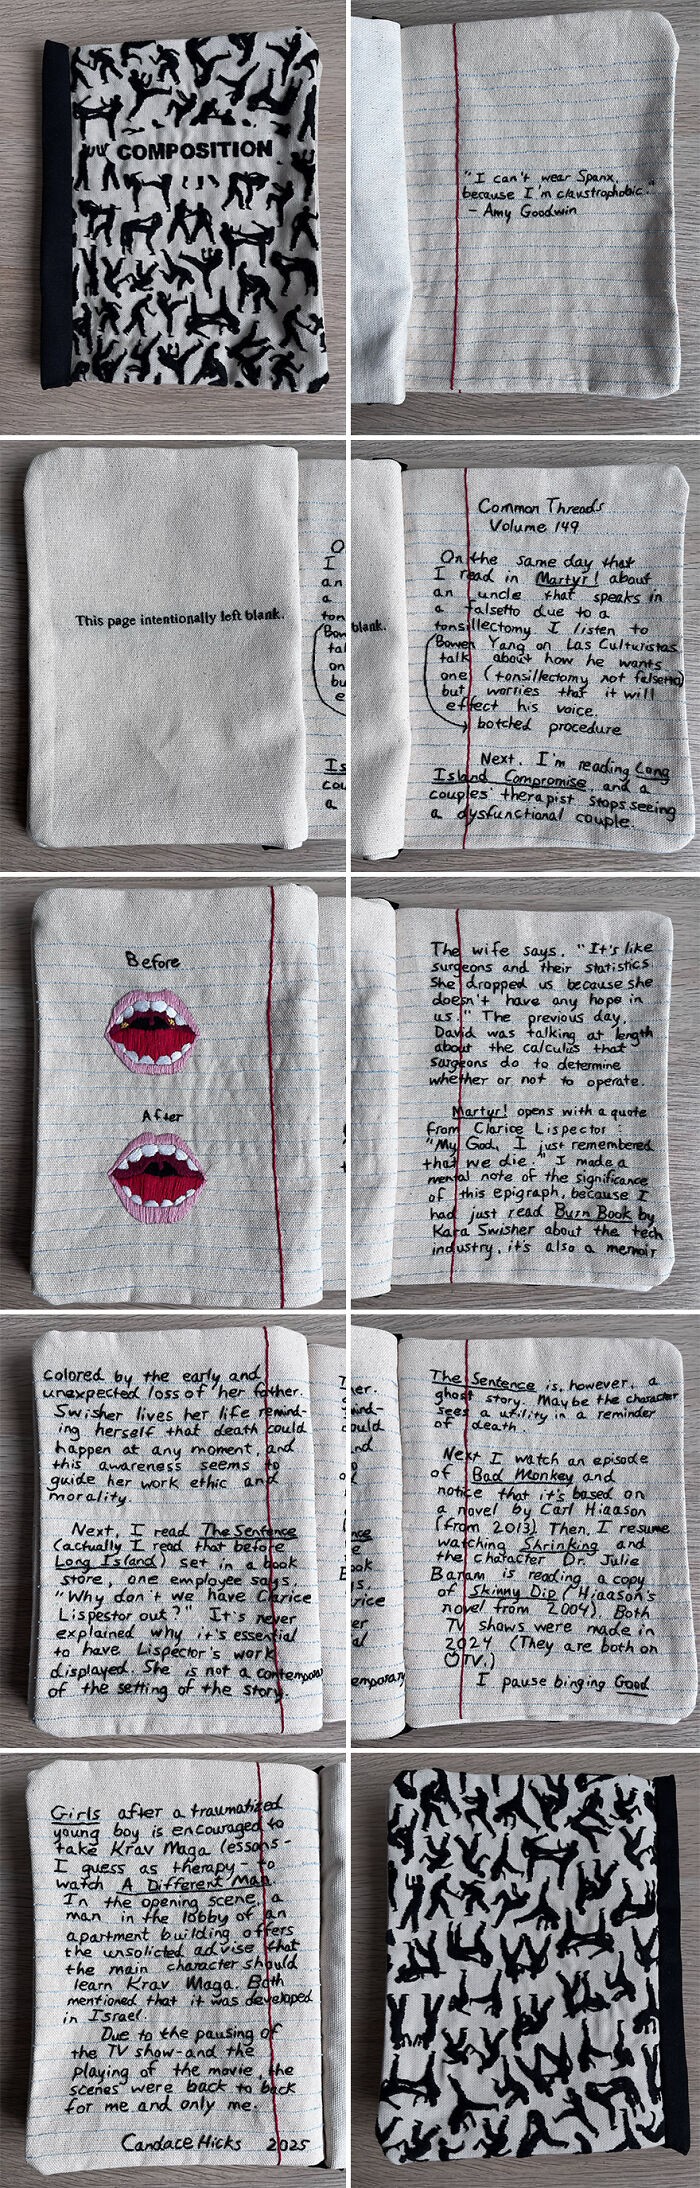 COMPOSITION
"I can't wear Spanx,
because I'm claustrophobic."
- Amy Goodwin
This page intentionally left blank.
O
I
an
a
ton
(Bow
tal
on
bu
e
Is
cou
a
blank.
Common Threads
Volume 149
On the same day that
I read in Martyr! about
an uncle that speaks in
a falsetto due to a
tonsillectomy I listen to
Bowen Yang on Las Culturistas
talk about how he wants
one (tonsillectomy not falsetto)
but worries that it will
effect his voice.
botched procedure
Next, I'm reading Long
Island Compromise, and a
couples' therapist stops seeing
a dysfunctional couple.
Before
After
The wife says, "It's like
surgeons and their statistics.
She dropped us because she
doesn't have any hope in
us." The previous day,
David was talking at length
about the calculus that
surgeons do to determine
whether or not to operate.
Martyr! opens with a quote
from Clarice Lispector:
"My God, I just remembered
that we die." I made a
mental note of the significance
of this epigraph, because I
had just read Burn Book by
Kara Swisher about the tech
industry, it's also a memoir
colored by the early and
unexpected loss of her father.
Swisher lives her life remind-
ing herself that death could
happen at any moment, and
this awareness seems to
guide her work ethic and
morality.
Next, I read The Sentence
(actually I read that before
Long Island) set in a book
store, one employee says,
"Why don't we have Clarice
Lispestor out?" It's never
explained why it's essential
to have Lispector's work
displayed. She is not a contemporary
of the setting of the story.
The Sentence is, however, a
ghost story. Maybe the character
sees a utility in a reminder
of death.
Next I watch an episode
of Bad Monkey and
notice that it's based on
a novel by Carl Hiaason
(from 2013). Then, I resume
watching Shrinking and
the character Dr. Julie
Baram is reading a copy
of Skinny Dip (Hiaason's
novel from 2004). Both
TV shows were made in
2024 (They are both on
TV.)
I pause binging Good
Girls after a traumatized
young boy is encouraged to
take Krav Maga lessons -
I guess as therapy - to
watch A Different Man.
In the opening scene, a
man in the lobby of an
apartment building offers
the unsolicted advise that
the main character should
learn Krav Maga. Both
mentioned that it was developed
in Israel.
Due to the pausing of
the TV show-and the
playing of the movie, the
scenes were back to back
for me and only me.
Candace Hicks 2025